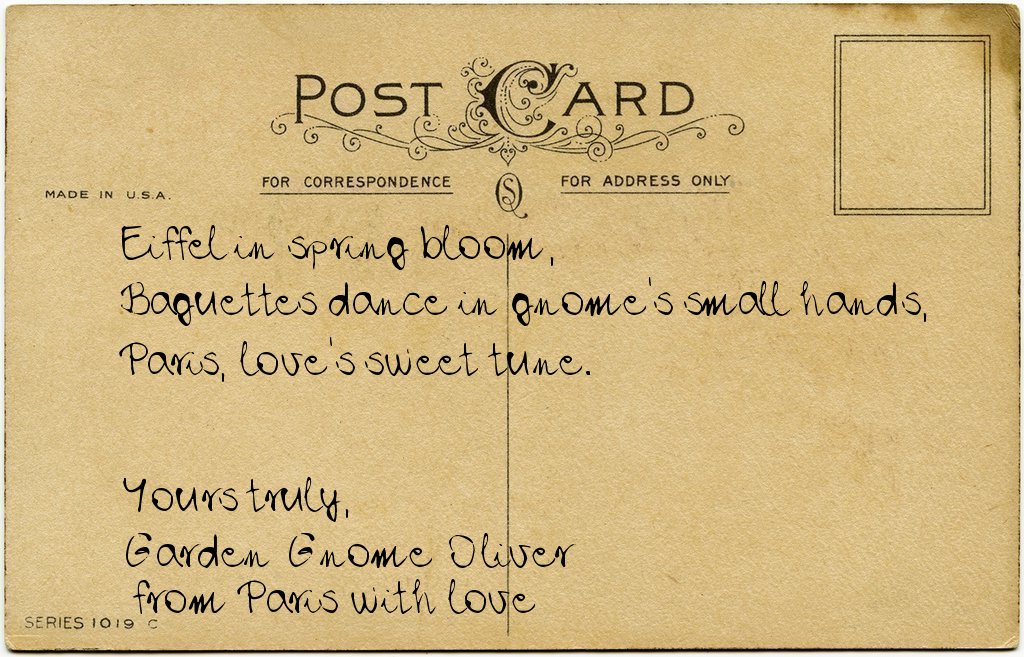 POST CARD
FOR CORRESPONDENCE
FOR ADDRESS ONLY
MADE IN U.S.A.
Eiffel in spring bloom,
Baguettes dance in gnome's small hands,
Paris, love's sweet tune.
Yours truly,
Garden Gnome Oliver
from Paris with love
SERIES 1019 C